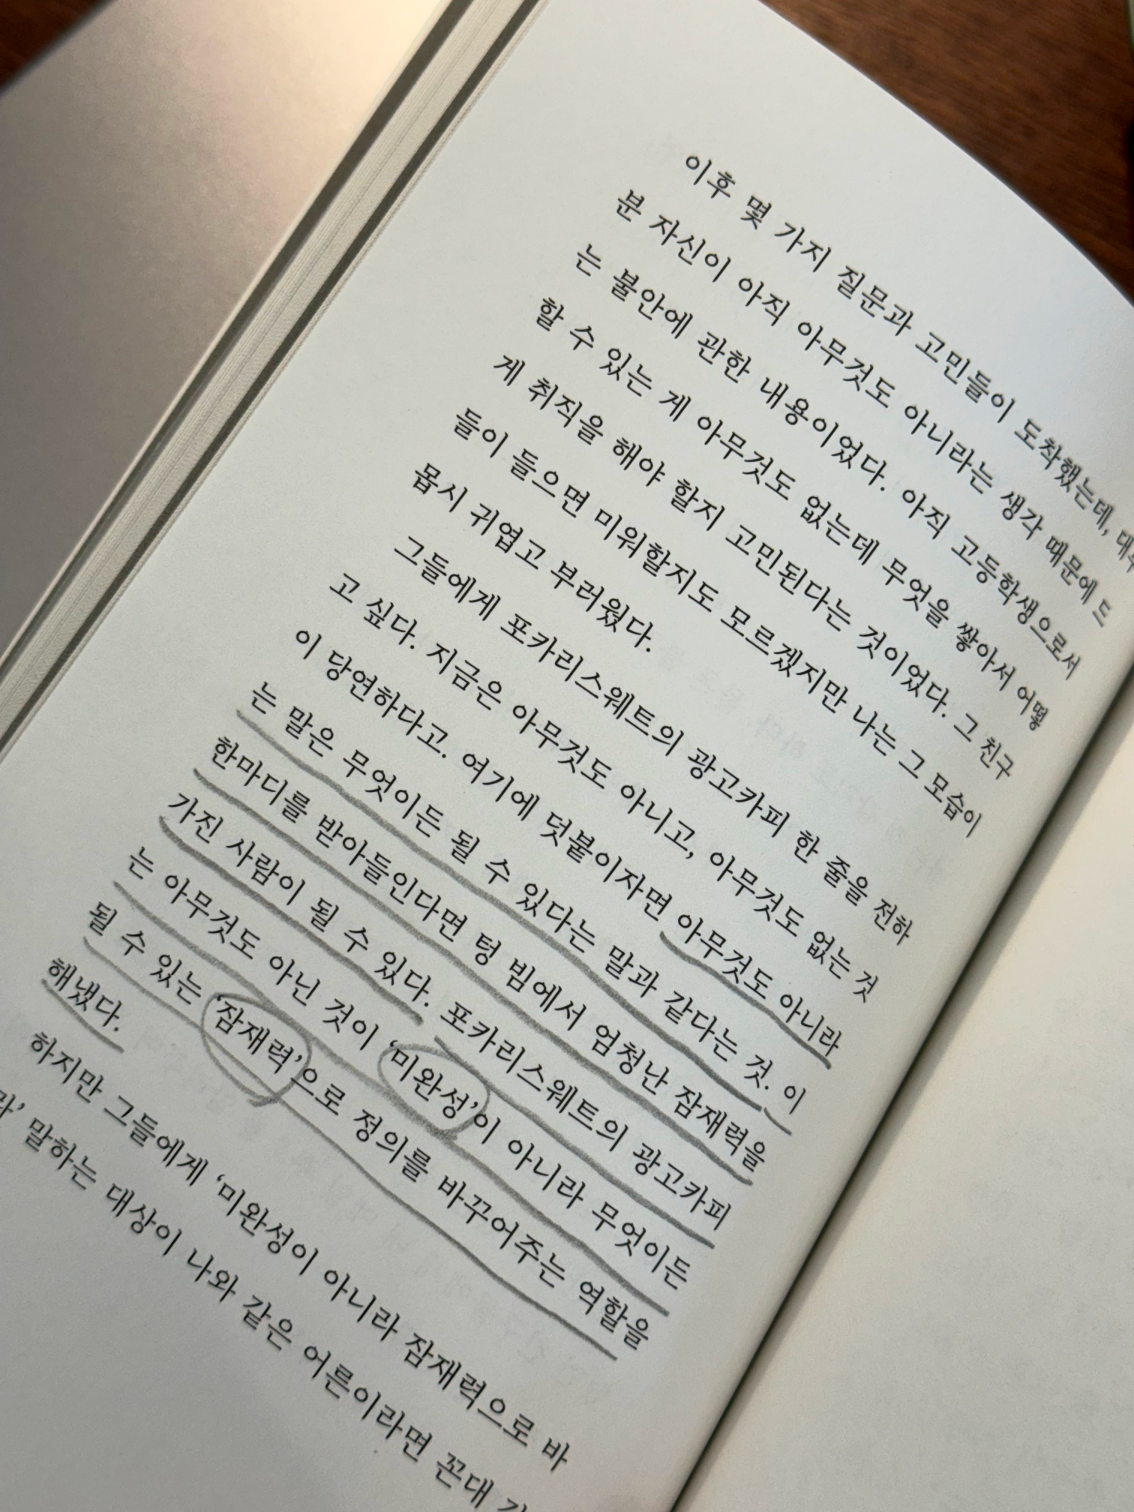 이후 몇 가지 질문과 고민들이 도착했는데, 대부
분 자신이 아직 아무것도 아니라는 생각 때문에 드
는 불안에 관한 내용이었다. 아직 고등학생으로서
할 수 있는 게 아무것도 없는데 무엇을 쌓아서 어떻
게 취직을 해야 할지 고민된다는 것이었다. 그 친구
들이 들으면 미워할지도 모르겠지만 나는 그 모습이
몹시 귀엽고 부러웠다.
그들에게 포카리스웨트의 광고카피 한 줄을 전하
고 싶다. 지금은 아무것도 아니고, 아무것도 없는 것
이 당연하다고. 여기에 덧붙이자면 아무것도 아니라
는 말은 무엇이든 될 수 있다는 말과 같다는 것. 이
한마디를 받아들인다면 텅 빔에서 엄청난 잠재력을
가진 사람이 될 수 있다. 포카리스웨트의 광고카피
는 아무것도 아닌 것이 ‘미완성’이 아니라 무엇이든
될 수 있는 ‘잠재력’으로 정의를 바꾸어주는 역할을
해냈다.
하지만 그들에게 ‘미완성이 아니라 잠재력으로 바
라’ 말하는 대상이 나와 같은 어른이라면 꼰대